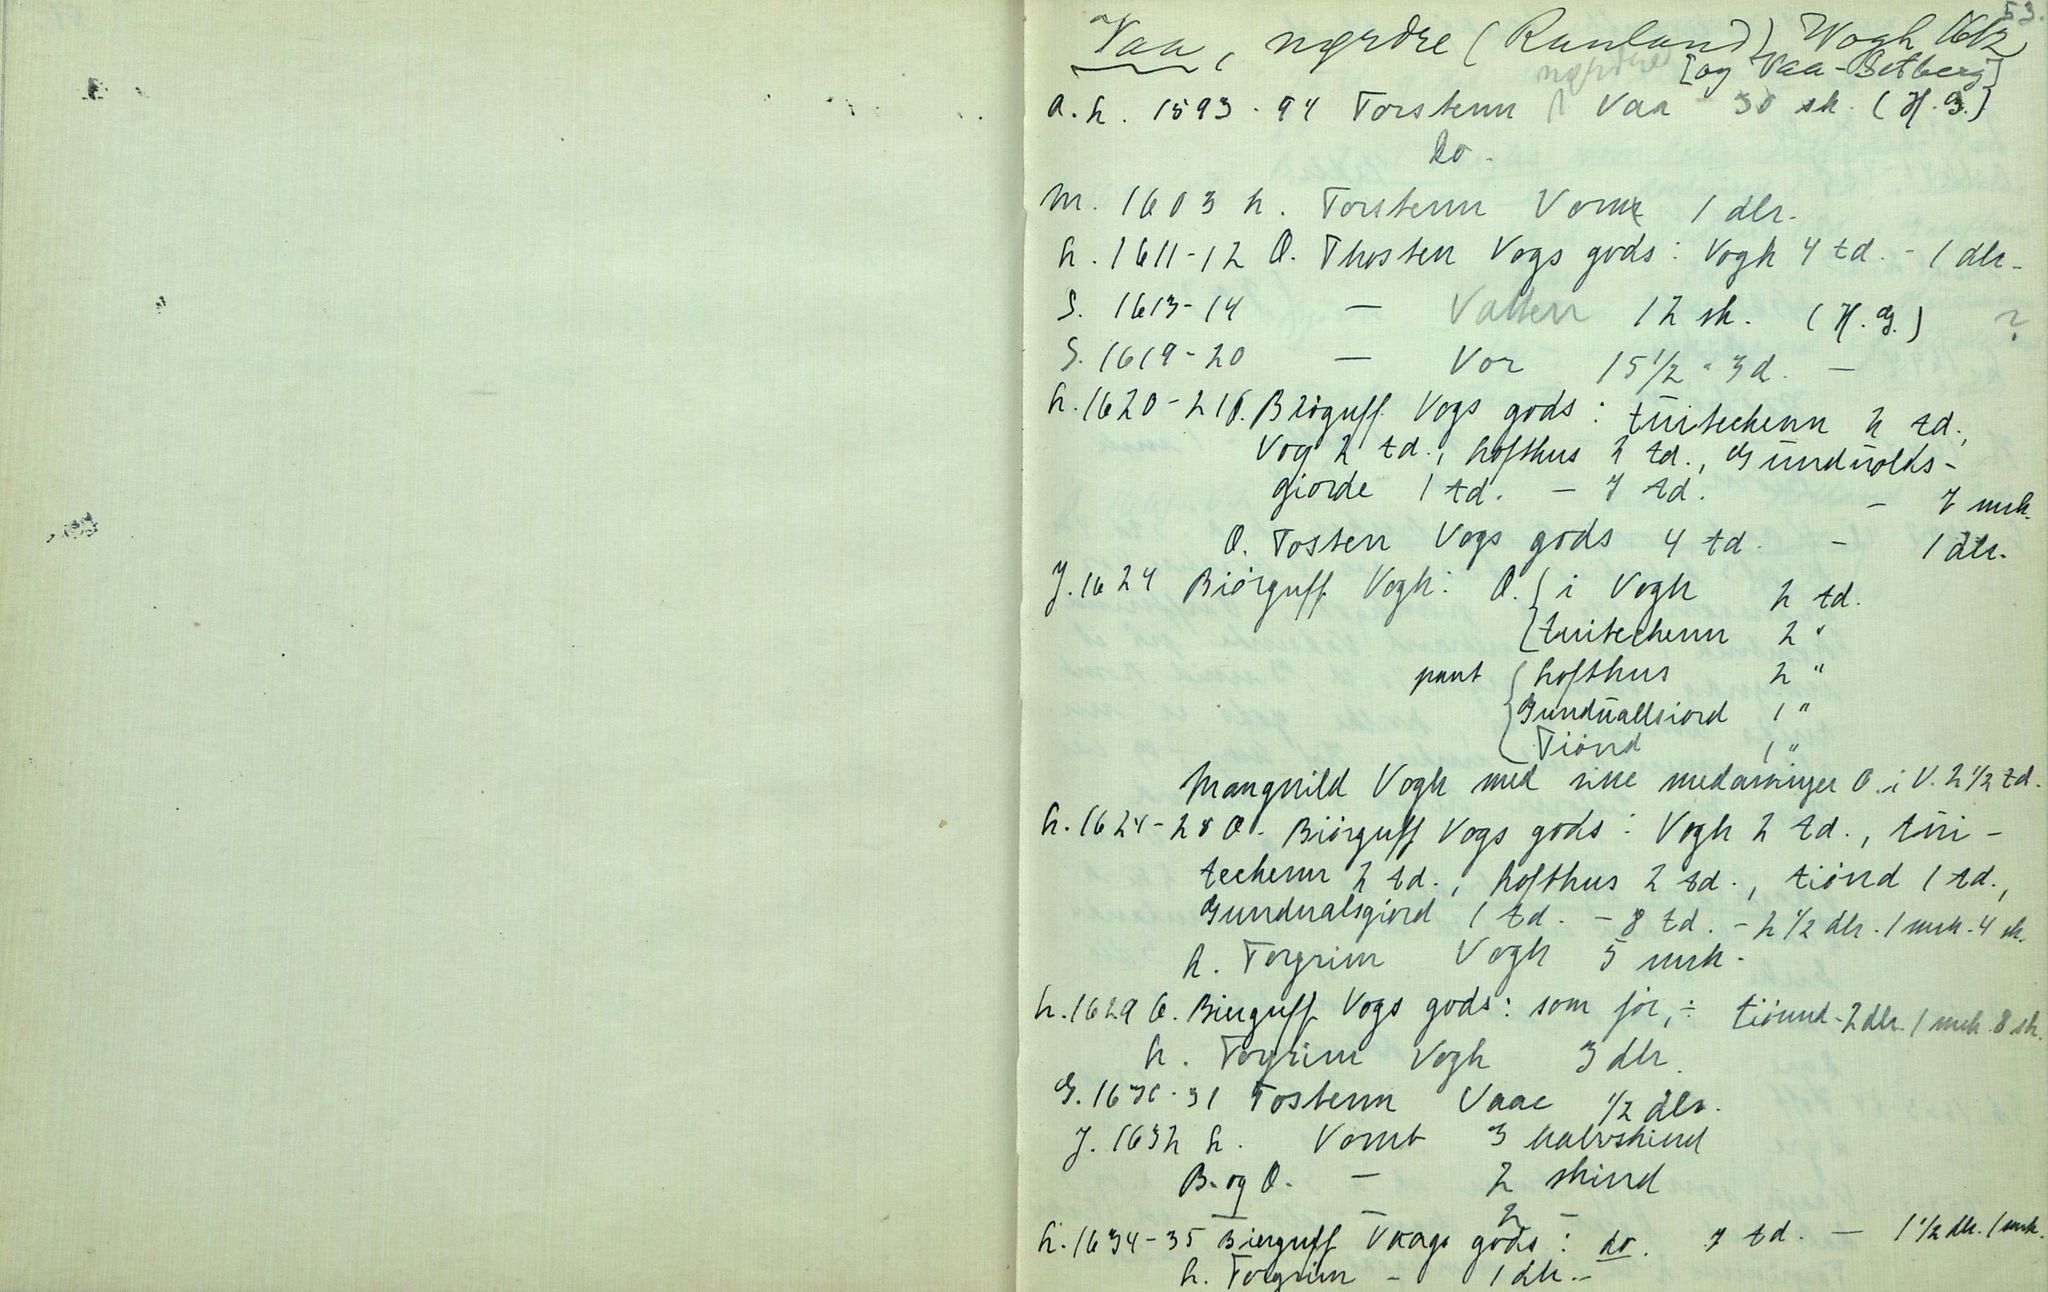 53.
Vaa, nørdre (Rauland) Wogh 1612
nørdre [og Vaa-Betberg]
a. h. 1593-94 Torstenn Vaa 30 sk. (H. G.)
do.
m. 1603 h. Torstenn Vom 1 dlr.
h. 1611-12 O. Thosten Vogs gods: Vogh 4 td. - 1 dlr.
S. 1613-14 — Vatten 12 sk. (H. G.) ?
S. 1619-20 — Vor 15 1/2 - 3 d. —
h. 1620-21 O. Biöguff Vogs gods: tüitechenn 2 td.,
Vog 2 td., hofthus 2 td., Gündüolds-
giorde 1 td. — 7 td. — 7 mrk.
O. Tosten Vogs gods 4 td. — 1 dlr.
J. 1624 Biörguff Vogh: O. { i Vogh 2 td.
tuitechenn 2 "
pant { hofthus 2 "
Gundüallsiord 1 "
Tiönd 1 "
Mangnild Vogh med sine medarvinger O. i V. 2 1/2 td.
h. 1624-28 O. Biörguff Vogs gods: Vogh 2 td., tüi-
techenn 2 td., hofthus 2 td., tiönd 1 td.,
Gundualsgiord 1 td. — 8 td. - 2 1/2 dlr. 1 mrk. 4 sk.
h. Torgrim Vogh 5 mrk.
h. 1629 O. Bierguff Vogs gods: som før, ÷ tiönnd - 2 dlr. 1 mrk. 8 sk.
h. Torgrim Vogh 3 dlr.
G. 1630-31 Tostenn Vaae 1/2 dlr.
J. 1632 h. Vomb 3 kalvskind
B. og O. — 2 skind
— 2 —
h. 1634-35 Bierguff Vaags gods: do. 7 td. — 1 1/2 dlr. 1 mrk.
h. Torgrim - 1 dlr. -